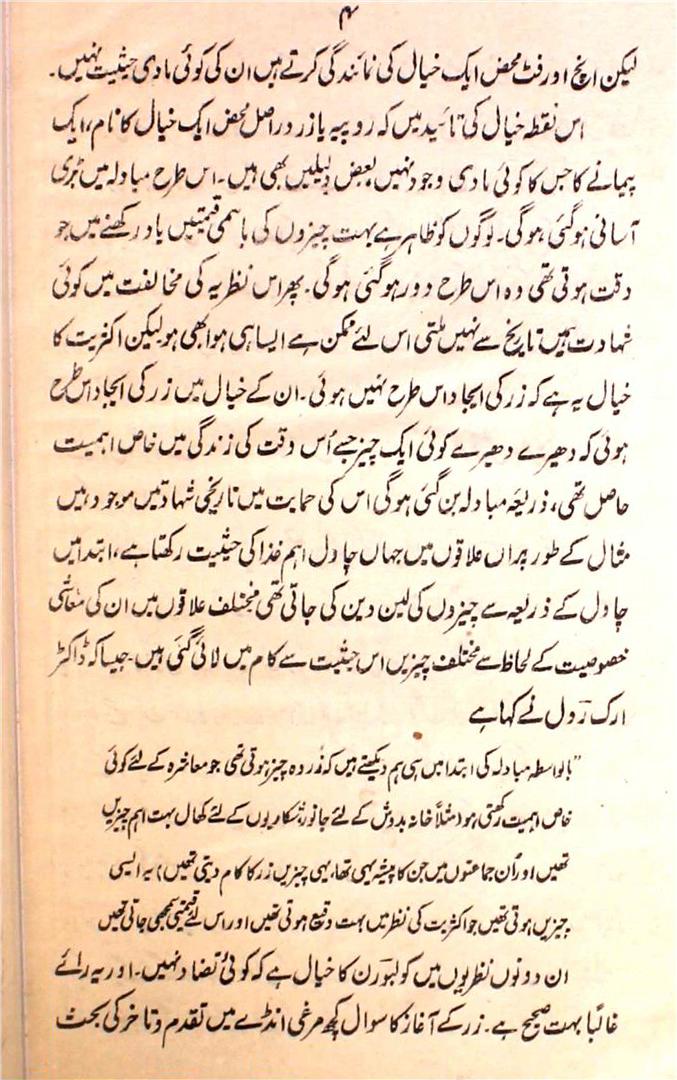 ۴
لیکن انچ اور فٹ محض ایک خیال کی نمائندگی کرتے ہیں ان کی کوئی مادی حیثیت نہیں۔
اس نقطہ خیال کی تائید میں کہ روپیہ یا زر دراصل محض ایک خیال کا نام، ایک
پیمانے کا جس کا کوئی مادی وجود نہیں بعض دلیلیں بھی ہیں۔ اس طرح مبادلہ میں بڑی
آسانی ہو گئی ہوگی۔ لوگوں کو ظاہر ہے بہت چیزوں کی باہمی قیمتیں یاد رکھنے میں جو
دقت ہوتی تھی وہ اس طرح دور ہو گئی ہوگی۔ پھر اس نظریہ کی مخالفت میں کوئی
شہادت ہمیں تاریخ سے نہیں ملتی اس لئے ممکن ہے ایسا ہی ہوا بھی ہو لیکن اکثریت کا
خیال یہ ہے کہ زر کی ایجاد اس طرح نہیں ہوئی۔ ان کے خیال میں زر کی ایجاد اس طرح
ہوئی کہ دھیرے دھیرے کوئی ایک چیز جسے اُس وقت کی زندگی میں خاص اہمیت
حاصل تھی، ذریعہ مبادلہ بن گئی ہوگی اس کی حمایت میں تاریخی شہادتیں موجود ہیں
مثال کے طور پر اں علاقوں میں جہاں چاول اہم غذا کی حیثیت رکھتا ہے، ابتدا میں
چاول کے ذریعہ سے چیزوں کی لین دین کی جاتی تھی مختلف علاقوں میں ان کی معاشی
خصوصیت کے لحاظ سے مختلف چیزیں اس حیثیت سے کام میں لائی گئی ہیں۔ جیسا کہ ڈاکٹر
ارک رول نے کہا ہے
"بالواسطہ مبادلہ کی ابتدا میں ہی ہم دیکھتے ہیں کہ زر وہ چیز ہوتی تھی جو معاشرہ کے لئے کوئی
خاص اہمیت رکھتی ہو (مثلاً خانہ بدوش کے لئے جانور، شکاریوں کے لئے کھال بہت اہم چیزیں
تھیں اور اُن جماعتوں میں جن کا پیشہ یہی تھا، یہی چیزیں زر کا کام دیتی تھیں) یہ ایسی
چیزیں ہوتی تھیں جو اکثریت کی نظر میں بہت وقیع ہوتی تھیں اور اس لئے قیمتی سمجھی جاتی تھیں
ان دونوں نظریوں میں کولبورن کا خیال ہے کہ کوئی تضاد نہیں۔ اور یہ رائے
غالباً بہت صحیح ہے۔ زر کے آغاز کا سوال کچھ مرغی انڈے میں تقدم و تاخر کی بحث